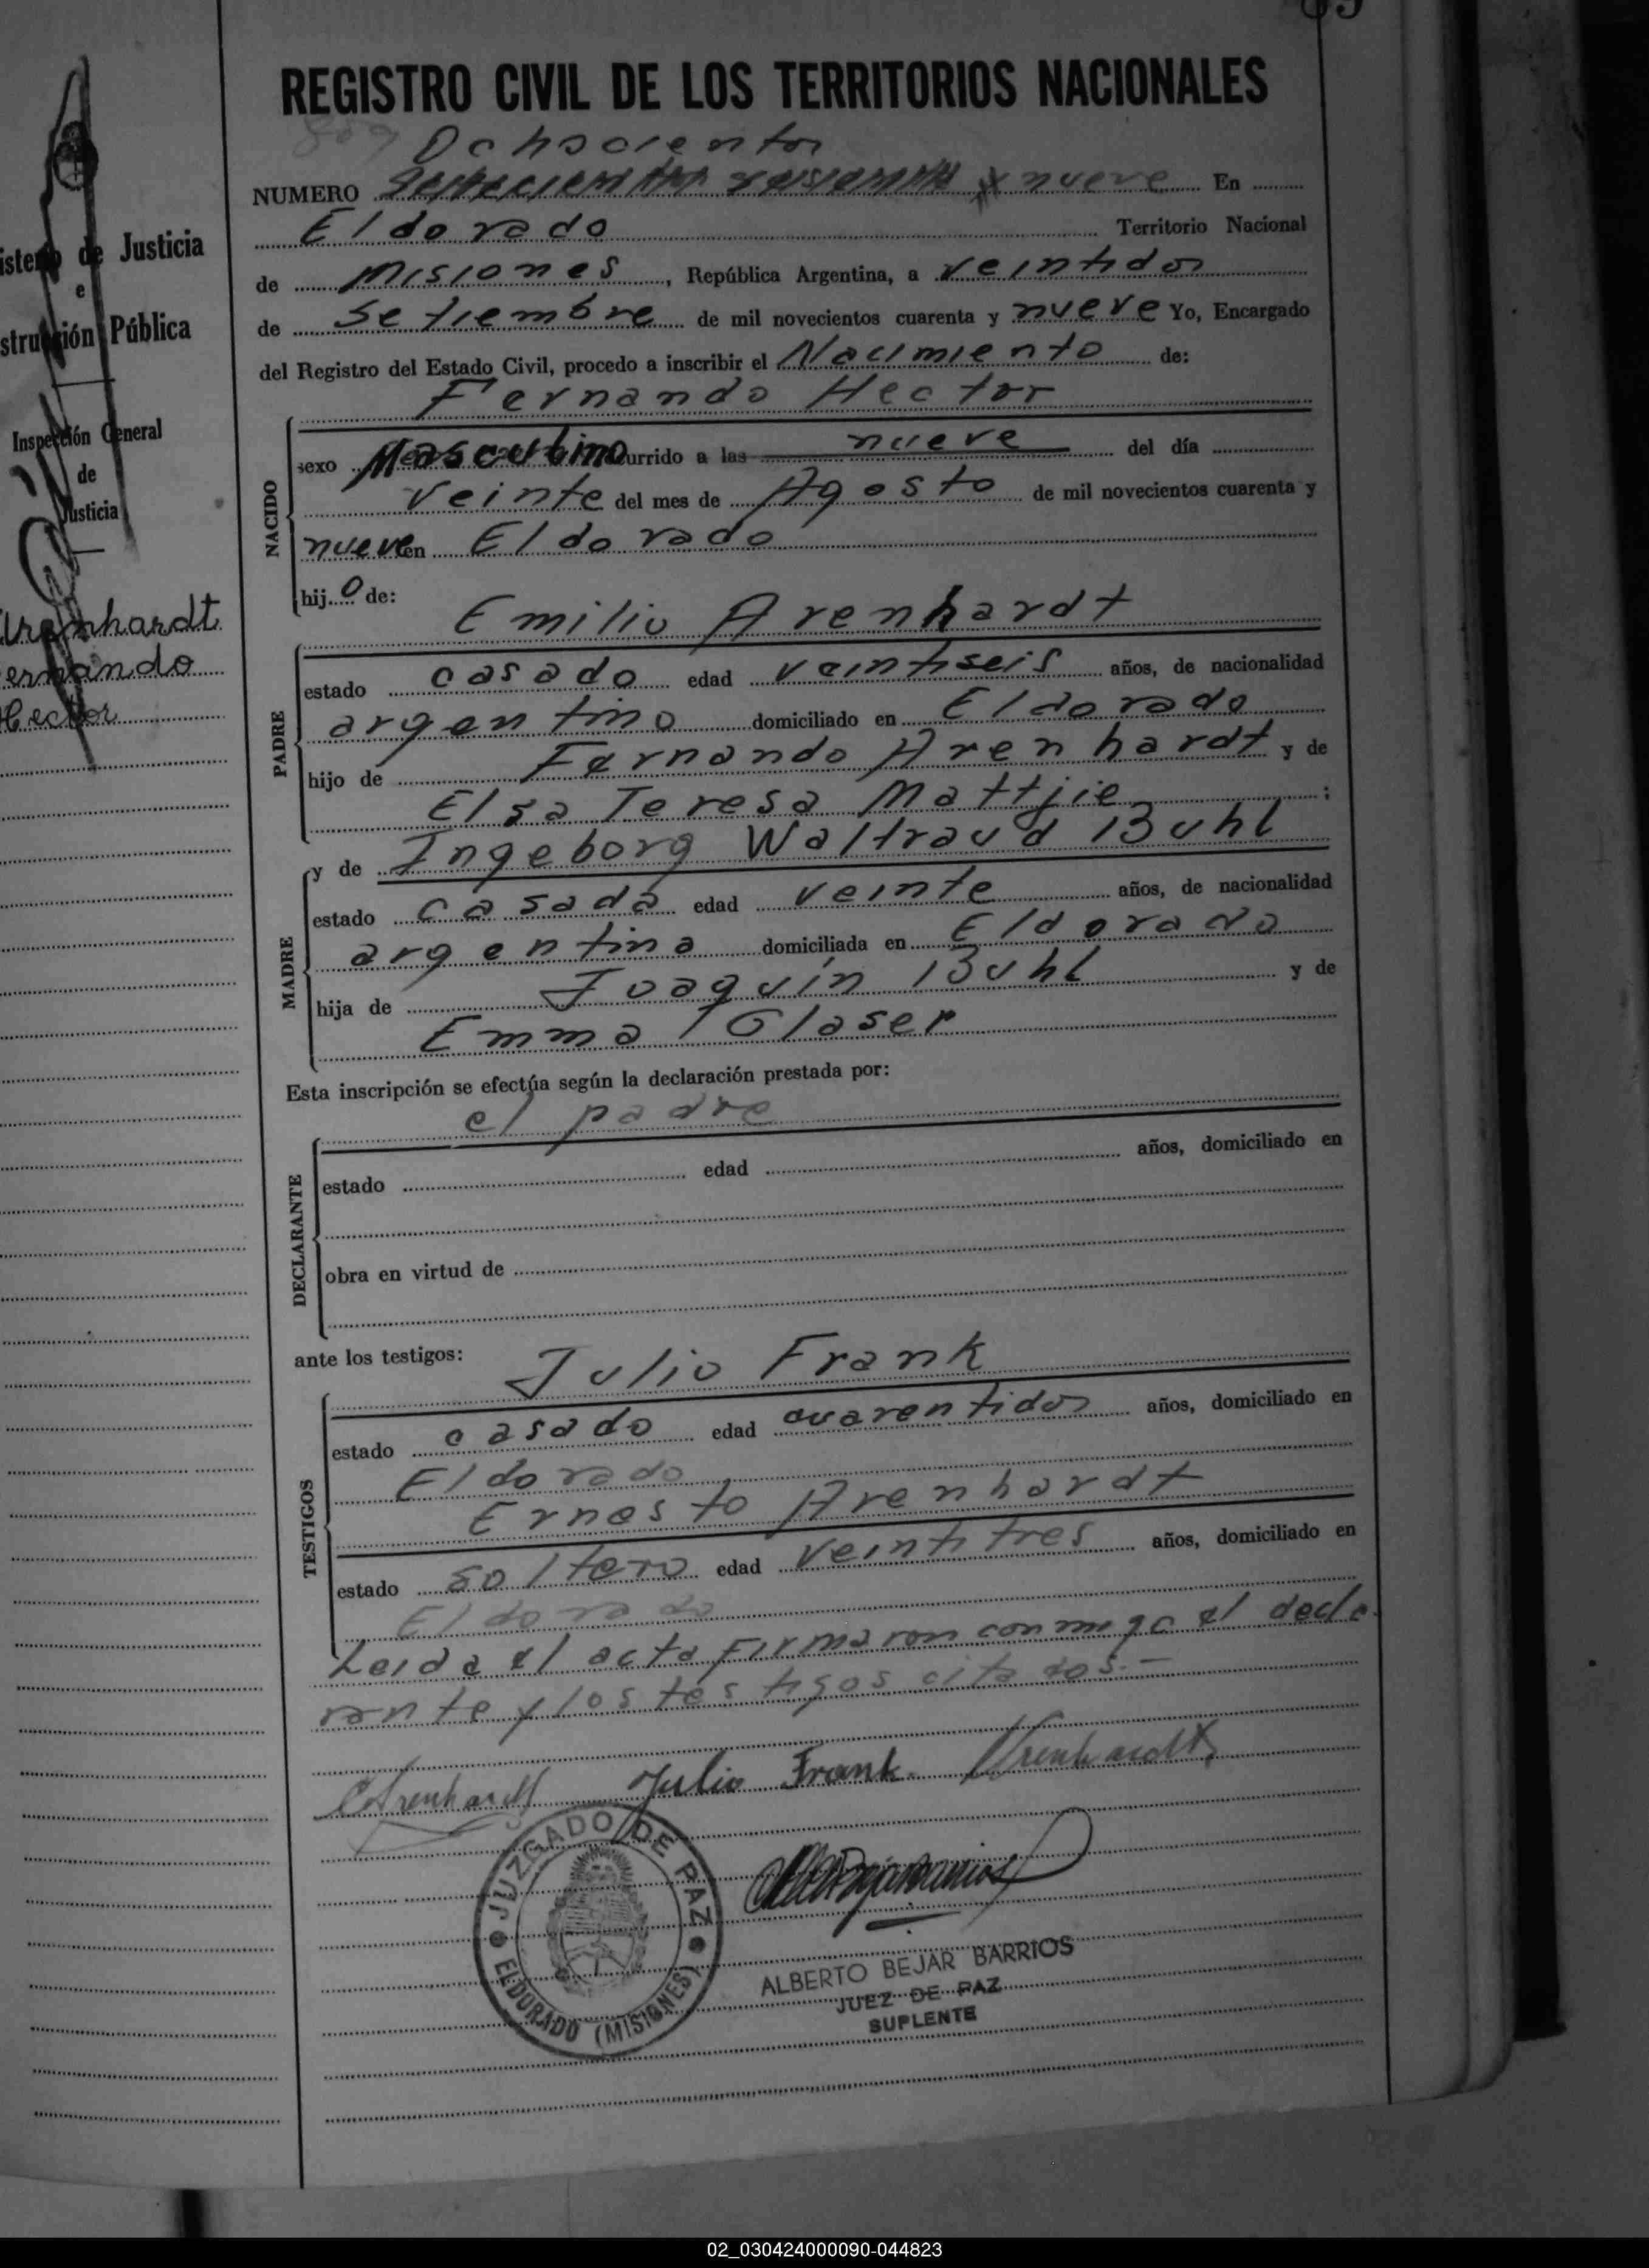 REGISTRO CIVIL DE LOS TERRITORIOS NACIONALES
809 Ochocientos
NUMERO nueve En
Eldorado Territorio Nacional
de Misiones, República Argentina, a veintidos
de Setiembre de mil novecientos cuarenta y nueve Yo, Encargado
del Registro del Estado Civil, procedo a inscribir el Nacimiento de:
Fernando Hector
NACIDO
sexo Masculino currido a las nueve del día
veinte del mes de Agosto de mil novecientos cuarenta y
nueve en Eldorado
hijo de:
Emilio Arenhardt
PADRE
estado casado edad veintiseis años, de nacionalidad
argentino domiciliado en Eldorado
hijo de Fernando Arenhardt y de
Elsa Teresa Mattjie;
y de Ingeborg Waltraud Buhl
MADRE
estado casada edad veinte años, de nacionalidad
argentina domiciliada en Eldorado
hija de Joaquín Buhl y de
Emma Glaser
Esta inscripción se efectúa según la declaración prestada por:
el padre
DECLARANTE
estado edad años, domiciliado en
obra en virtud de
ante los testigos:
Julio Frank
TESTIGOS
estado casado edad cuarentidos años, domiciliado en
Eldorado
Ernesto Arenhardt
estado soltero edad veintitres años, domiciliado en
Eldorado
Leida el acta firmaron conmigo el decla
rante y los testigos citados.-
EArenhardt Julio Frank. Arenhardt
JUZGADO DE PAZ
ELDORADO (MISIONES)
ALBERTO BEJAR BARRIOS
JUEZ DE PAZ
SUPLENTE
isterio de Justicia
e
strucción Pública
Inspección General
de
Justicia
Arenhardt
ernando
Hector
02_030424000090-044823